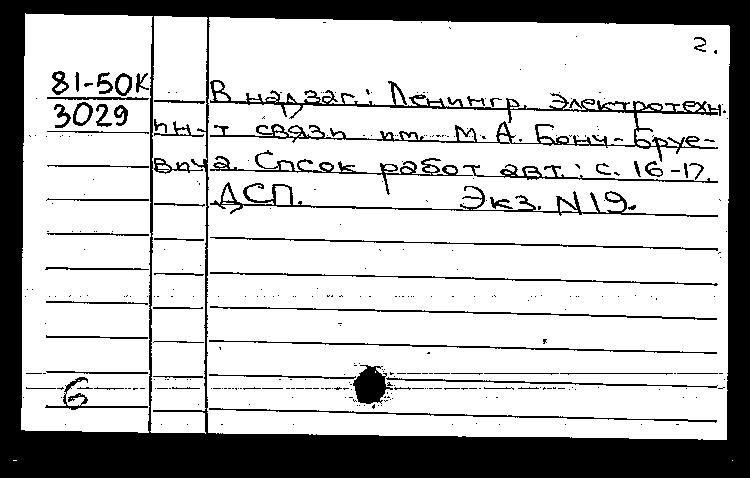 2.
81-50К
3029
В надзаг.: Ленингр. электротехн.
ин-т связи им. М. А. Бонч-Бруе-
вича. Список работ авт.: с. 16-17.
ДСП. Экз. N19.
6